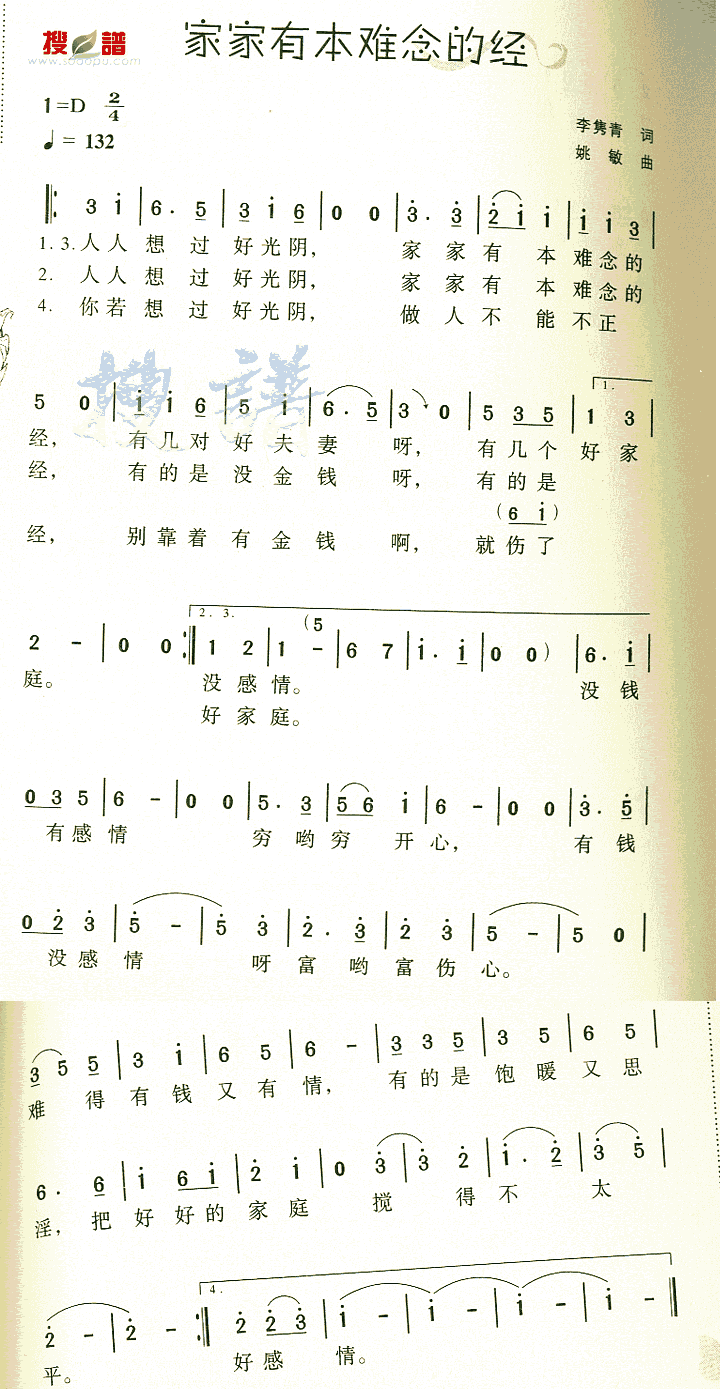 搜谱
www.sooopu.com
家家有本难念的经
1=D 2/4
♩= 132
李隽青 词
姚敏 曲
3 i 6. 5 3 i 6 0 0 3. 3 2 i i i i 3
1.3.人人想过好光阴， 家家有本难念的
2. 人人想过好光阴， 家家有本难念的
4. 你若想过好光阴， 做人不能不正
搜谱
1.
5 0 i i 6 5 i 6. 5 3 0 5 3 5 1 3
经， 有几对好夫妻呀， 有几个好家
经， 有的是没金钱呀， 有的是
(6 i)
经， 别靠着有金钱啊， 就伤了
2. 3.
2 - 0 0 1 2 1 (5 - 6 7 i. i 0 0) 6. i
庭。 没感情。 没钱
好家庭。
0 3 5 6 - 0 0 5. 3 5 6 i 6 - 0 0 3. 5
有感情 穷哟穷开心， 有钱
0 2 3 5 - 5 3 2. 3 2 3 5 - 5 0
没感情 呀富哟富伤心。
3 5 5 3 i 6 5 6 - 3 3 5 3 5 6 5
难得有钱又有情， 有的是饱暖又思
6. 6 i 6 i 2 i 0 3 3 2 i. 2 3 5
淫，把好好的家庭 搅得不太
4.
2 - 2 - 2 2 3 i - i - i - i -
平。 好感情。